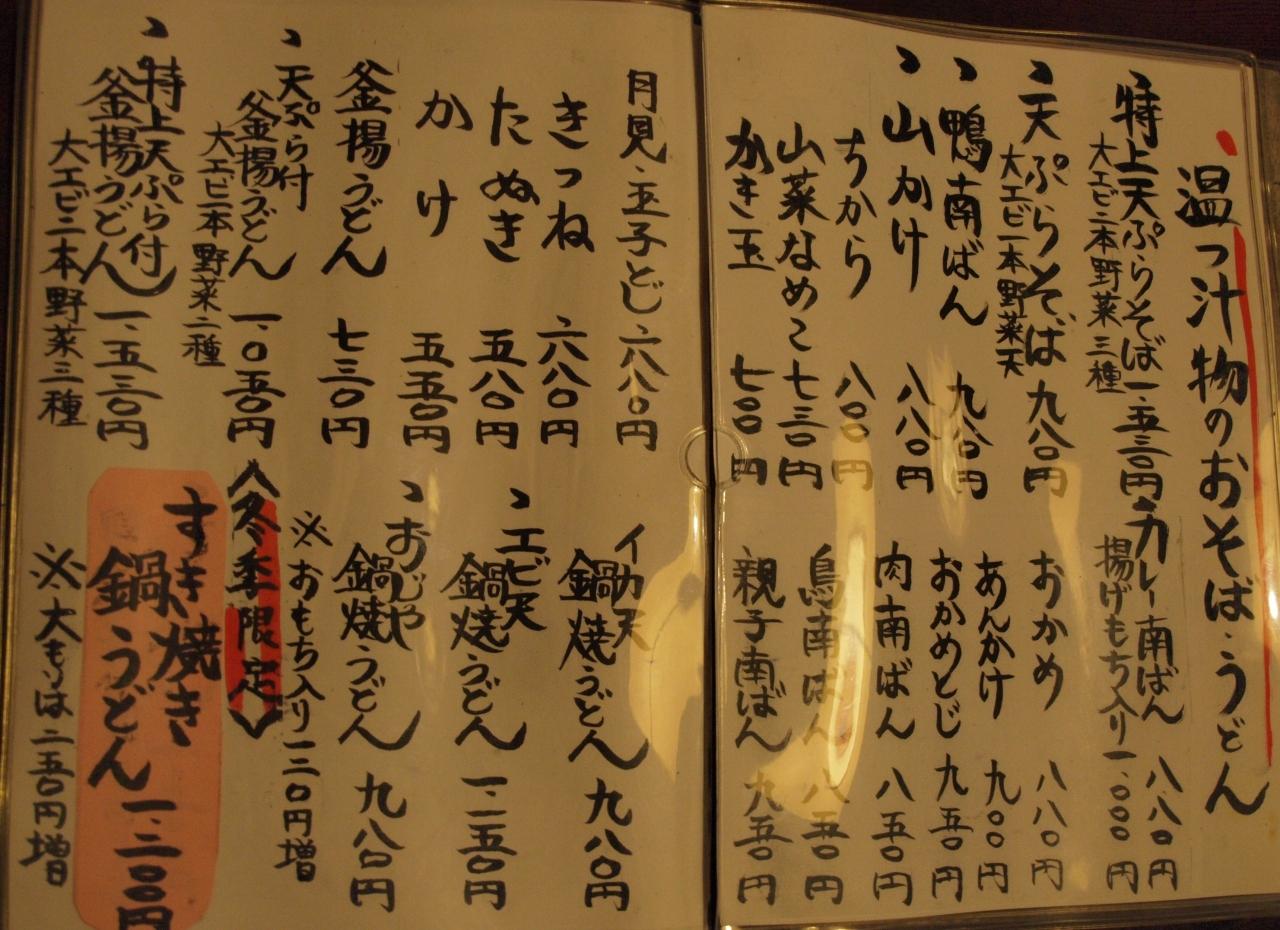 温つ汁物のおそば・うどん
特上天ぷらそば 一、五三〇円
大エビ二本野菜三種
天ぷらそば 九八〇円
大エビ一本野菜天
鴨南ばん 九八〇円
山かけ 八八〇円
ちから 八〇〇円
山菜なめこ 七三〇円
かき玉 七〇〇円
カレー南ばん 八八〇円
揚げもち入り 一、〇〇〇円
おかめ 八八〇円
あんかけ 九〇〇円
おかめとじ 九五〇円
肉南ばん 八五〇円
鳥南ばん 八五〇円
親子南ばん 九五〇円
月見・玉子とじ 六八〇円
きつね 六八〇円
たぬき 五八〇円
かけ 五五〇円
釜揚うどん 七三〇円
天ぷら付
釜揚うどん 一、〇五〇円
大エビ一本野菜二種
特上天ぷら付
釜揚うどん 一、五三〇円
大エビ二本野菜三種
イカ天
鍋焼うどん 九八〇円
エビ天
鍋焼うどん 一、一五〇円
おじや
鍋焼うどん 九八〇円
※おもち入り一二〇円増
〈冬季限定〉
すき焼き
鍋うどん 一、二〇〇円
※大もりは二五〇円増